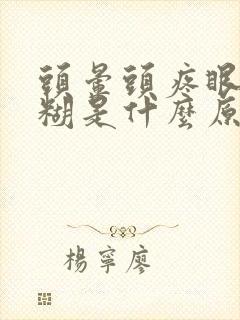 頭暈頭疼眼
糊是什麼原
楊寧廖